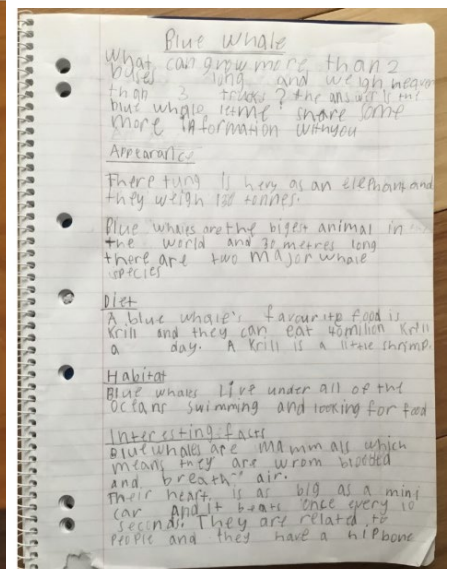 Blue Whale
What can grow more than 2
buses long and weigh
than 3 trucks? the answer is the
blue whale let me share some
more information with you
Appearance
There tung is hevy as an elephant and
they weigh 130 tonnes.
Blue whales are the bigest animal in
the world and 30 metres long
there are two major whale
species
Diet
A blue whale's favourite food is
Krill and they can eat 40 milion Krill
a day. A Krill is a little shrimp.
Habitat
Blue whales Live under all of the
Oceans swimming and looking for food
Interesting facts
Blue whales are mammals which
means they are wrom blooded
and breath air.
Their heart is as big as a mini
car and it beats once every 10
seconds. They are related to
People and they have a hipbone